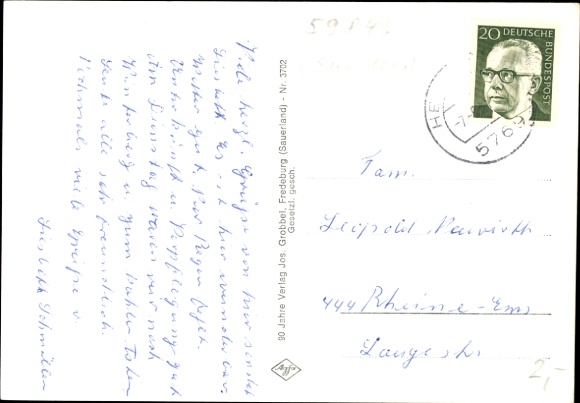 Viele herzl. Grüße von hier sendet
Liesbeth. Es ist hier wunderbar.
Wetter gut. Nur Regen
Unterkünft u. Verpflegung gut
Am Dienstag waren wir nach
Winterberg u. zum kahlen
Leute alle sehr freundlich.
Nochmals viele Grüße v.
Liesbeth
90 Jahre Verlag Jos. Grobbel, Fredeburg (Sauerland) - Nr. 3702
Gesetzl. gesch.
20 DEUTSCHE
BUNDESPOST
HE
-7.
5769
Fam.
Leopold
444 Rheine-Ems
Langestr
2,-